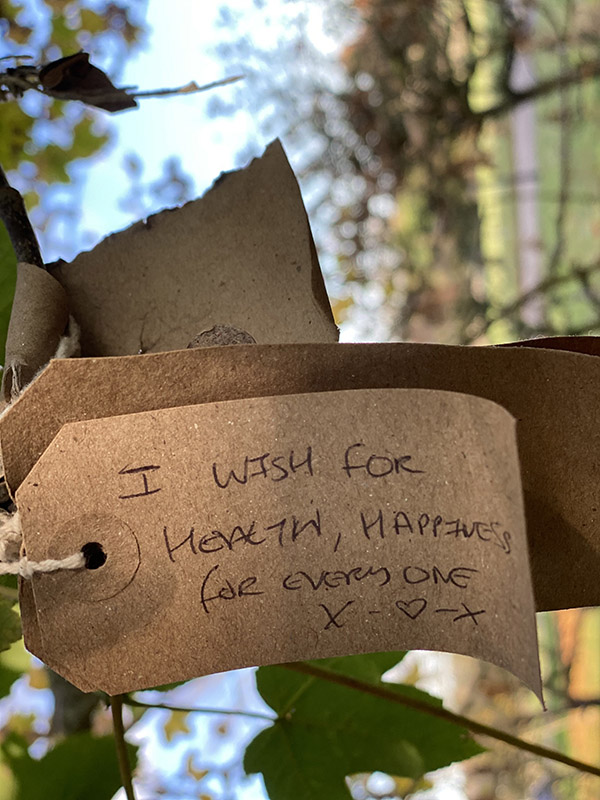 I WISH FOR
HEALTH, HAPPINESS
FOR EVERY ONE
X-♡-X